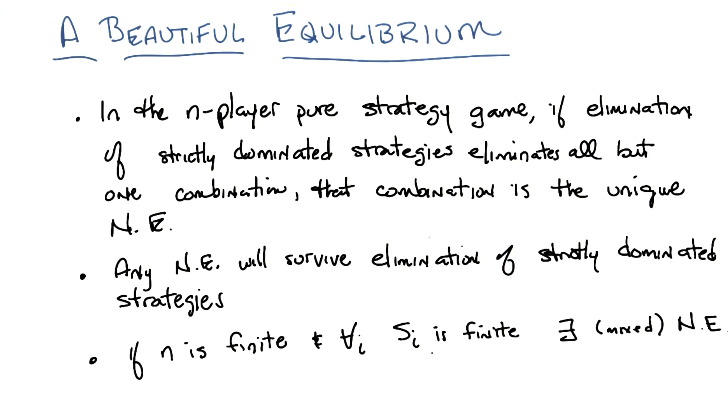 A BEAUTIFUL EQUILIBRIUM
• In the n-player pure strategy game, if elimination
of strictly dominated strategies eliminates all but
one combination, that combination is the unique
N. E.
• Any N.E. will survive elimination of strictly dominated
strategies
• if n is finite & ∀i Si is finite ∃ (mixed) N.E